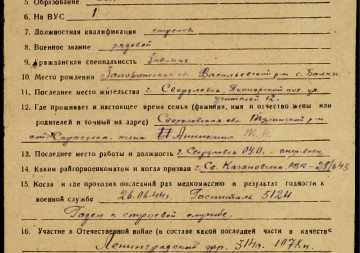 5. Образование
6. На ВУС 1
7. Должностная квалификация стрелок
8. Военное звание рядовой
9. Гражданская специальность
10. Место рождения Запорожская обл. Васильевский р-н с. Балки
11. Последнее место жительства г. Свердловск, Пионерский пос. ул.
12.
12. Где проживает в настоящее время семья (фамилия, имя и отчество жены или
родителей и точный их адрес) Свердловская обл.
ст.
13. Последнее место работы и должность г. Свердловск
14. Каким райгорвоенкоматом и когда призван г. Св. Кагановича РВК
15. Когда и где проходил последний раз медкомиссию и результат годности к
военной службе 26.06.44г. Госпиталь 5124
Годен к строевой службе.
16. Участие в Отечественной войне (в составе какой последней части и качестве
Ленинградский фр. 314д. 1078п.